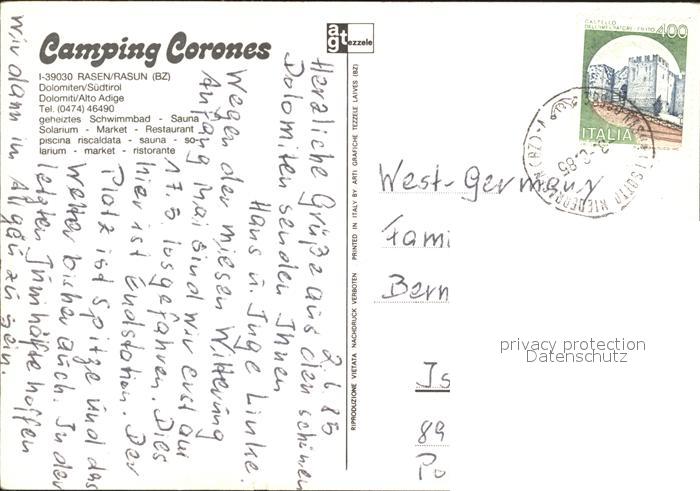 Camping Corones
I-39030 RASEN/RASUN (BZ)
Dolomiten/Südtirol
Dolomiti/Alto Adige
Tel. (0474) 46490
geheiztes Schwimmbad - Sauna
Solarium - Market - Restaurant
piscina riscaldata - sauna - so-
larium - market - ristorante
agt ezzele
RIPRODUZIONE VIETATA NACHDRUCK VERBOTEN PRINTED IN ITALY BY ARTI GRAFICHE TEZZELE LAIVES (BZ)
2.6.85
Herzliche Grüße aus den schönen
Dolomiten senden Ihnen
Hans u. Inge Linke.
Wegen der miesen Witterung
Anfang Mai sind wir erst am
17.5. losgefahren. Dies
hier ist Endstation. Der
Platz ist spitze und das
Wetter bisher auch. In der
letzten Junihälfte hoffen
wir dann im Allgäu zu sein.
CASTELLO
400
ITALIA
(BZ)
85
West-Germany
Fami
Bern
Is
89
Po
privacy protection
Datenschutz